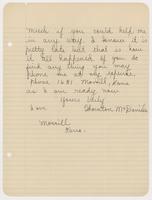 much if you could help me
in any way. I know it is
pretty late but that is how
it all happened. If you do
find any thing you may
phone me at my expense.
phone 1681 Morrill, Kans
as I am ready now
Yours truly
I am Thornton McDaniels
Morrill
Kans.